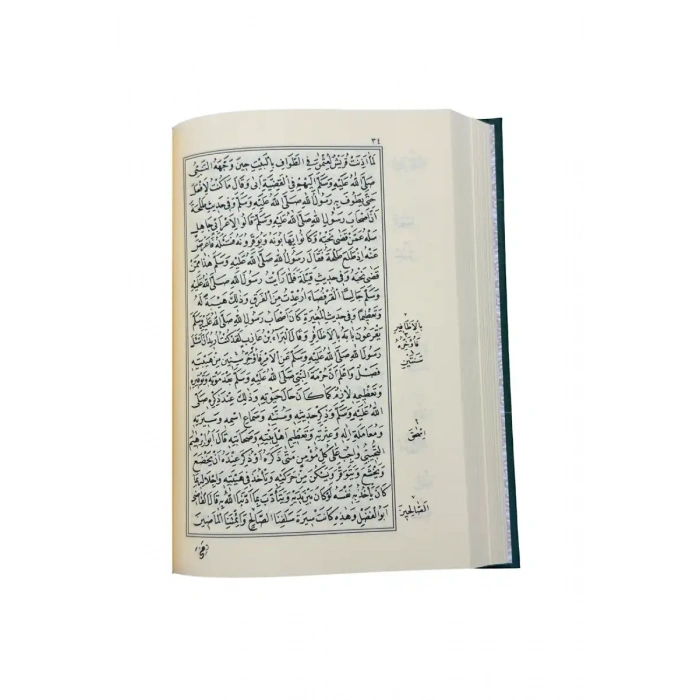 ٣٤
لما اذنت قريش لعثمن فى الطواف بالبيت حين وجهه النبى
صلى الله عليه وسلم اليهم فى القضية ابى وقال ما كنت لافعل
حتى يطوف به رسول الله صلى الله عليه وسلم وفى حديث طلحة
ان اصحاب رسول الله صلى الله عليه وسلم قالوا لاعرابى جاهل
سله عمن قضى نحبه وكانوا يهابونه ويوقرونه فسأله فاعرض
عنه اذ طلع طلحة فقال رسول الله صلى الله عليه وسلم هذا ممن
قضى نحبه وفى حديث قيلة فلما رأيت رسول الله صلى الله عليه
وسلم جالسا القرفصاء ارعدت من الفرق وذلك هيبة له
وتعظيما وفى حديث المغيرة كان اصحاب رسول الله صلى الله عليه وسلم
يقرعون بابه بالاظافر وقال البراء بن عازب لقد كنت اريد ان اسأل
رسول الله صلى الله عليه وسلم عن الامر فاؤخر سنين من هيبته
فصل واعلم ان حرمة النبى صلى الله عليه وسلم بعد موته وتوقيره
وتعظيمه لازم كما كان حال حيوته وذلك عند ذكره صلى
الله عليه وسلم وذكر حديثه وسنته وسماع اسمه وسيرته
ومعاملة اله وعترته وتعظيم اهل بيته وصحابته قال ابو ابرهيم
التجيبى واجب على كل مؤمن متى ذكره او ذكر عنده ان يخضع
ويخشع ويتوقر ويسكن من حركته ويأخذ فى هيبته واجلاله بما
كان يأخذ به نفسه لو كان بين يديه ويتأدب بما ادبنا الله به قال القاضى
ابو الفضل وهذه كانت سيرة سلفنا الصالح وائمتنا الماضين
بالاظافير
فاوخره
سنتين
الصالحين